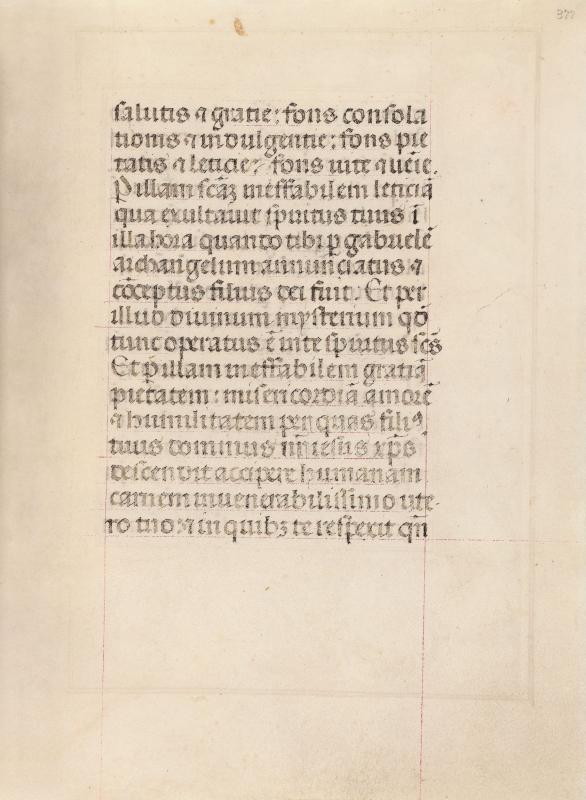 377
salutis ⁊ gratie: fons consola
tionis ⁊ indulgentie: fons pie
tatis ⁊ leticie: fons uite ⁊ uēie.
P illam scāꝫ ineffabilem leticiā
qua exultauit spiritus tuus ī
illa hora quando tibi ꝑ gabrielē
archangelum annunciatus ⁊
cōceptus filius dei fuit. Et per
illud diuinum mysterium qd̄
tunc operatus ē in te spiritus scs̄
Et ꝑ illam ineffabilem gratiā
pietatem: misericordiā amorē
⁊ humilitatem per quas filiꝰ
tuus dominus nr̄ iesus xp̄s
descendit accipere humanam
carnem in uenerabilissimo ute-
ro tuo: ⁊ in quibꝫ te respexit qn̄